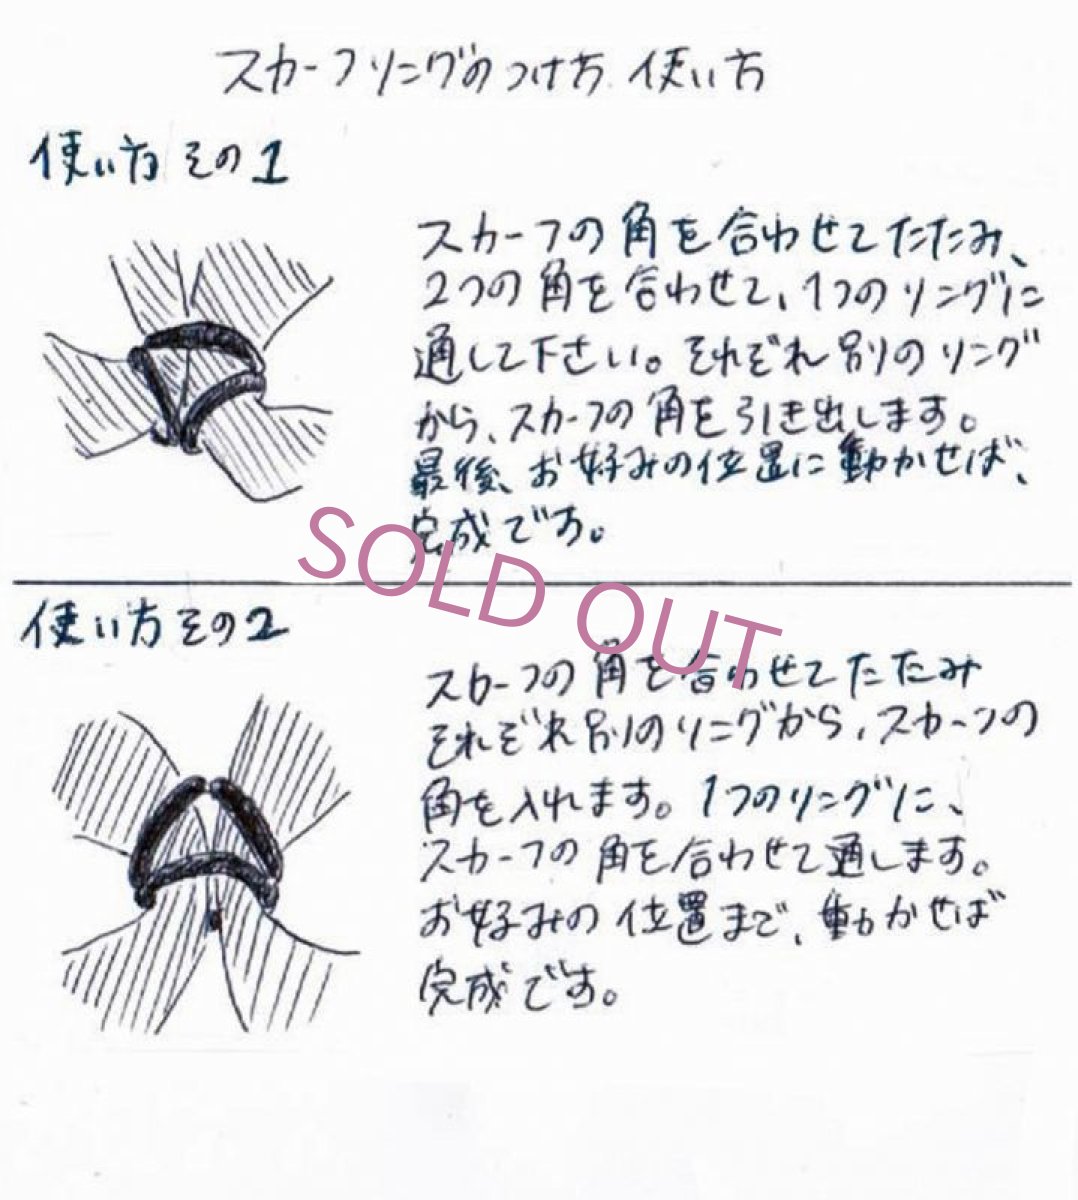 スカーフリングのつけ方、使い方
使い方 その1
スカーフの角を合わせてたたみ、
2つの角を合わせて、1つのリングに
通して下さい。それぞれ別のリング
から、スカーフの角を引き出します。
最後、お好みの位置に動かせば、
完成です。
SOLD OUT
使い方 その2
スカーフの角を合わせてたたみ
それぞれ別のリングから、スカーフの
角を入れます。1つのリングに、
スカーフの角を合わせて通します。
お好みの位置まで、動かせば
完成です。